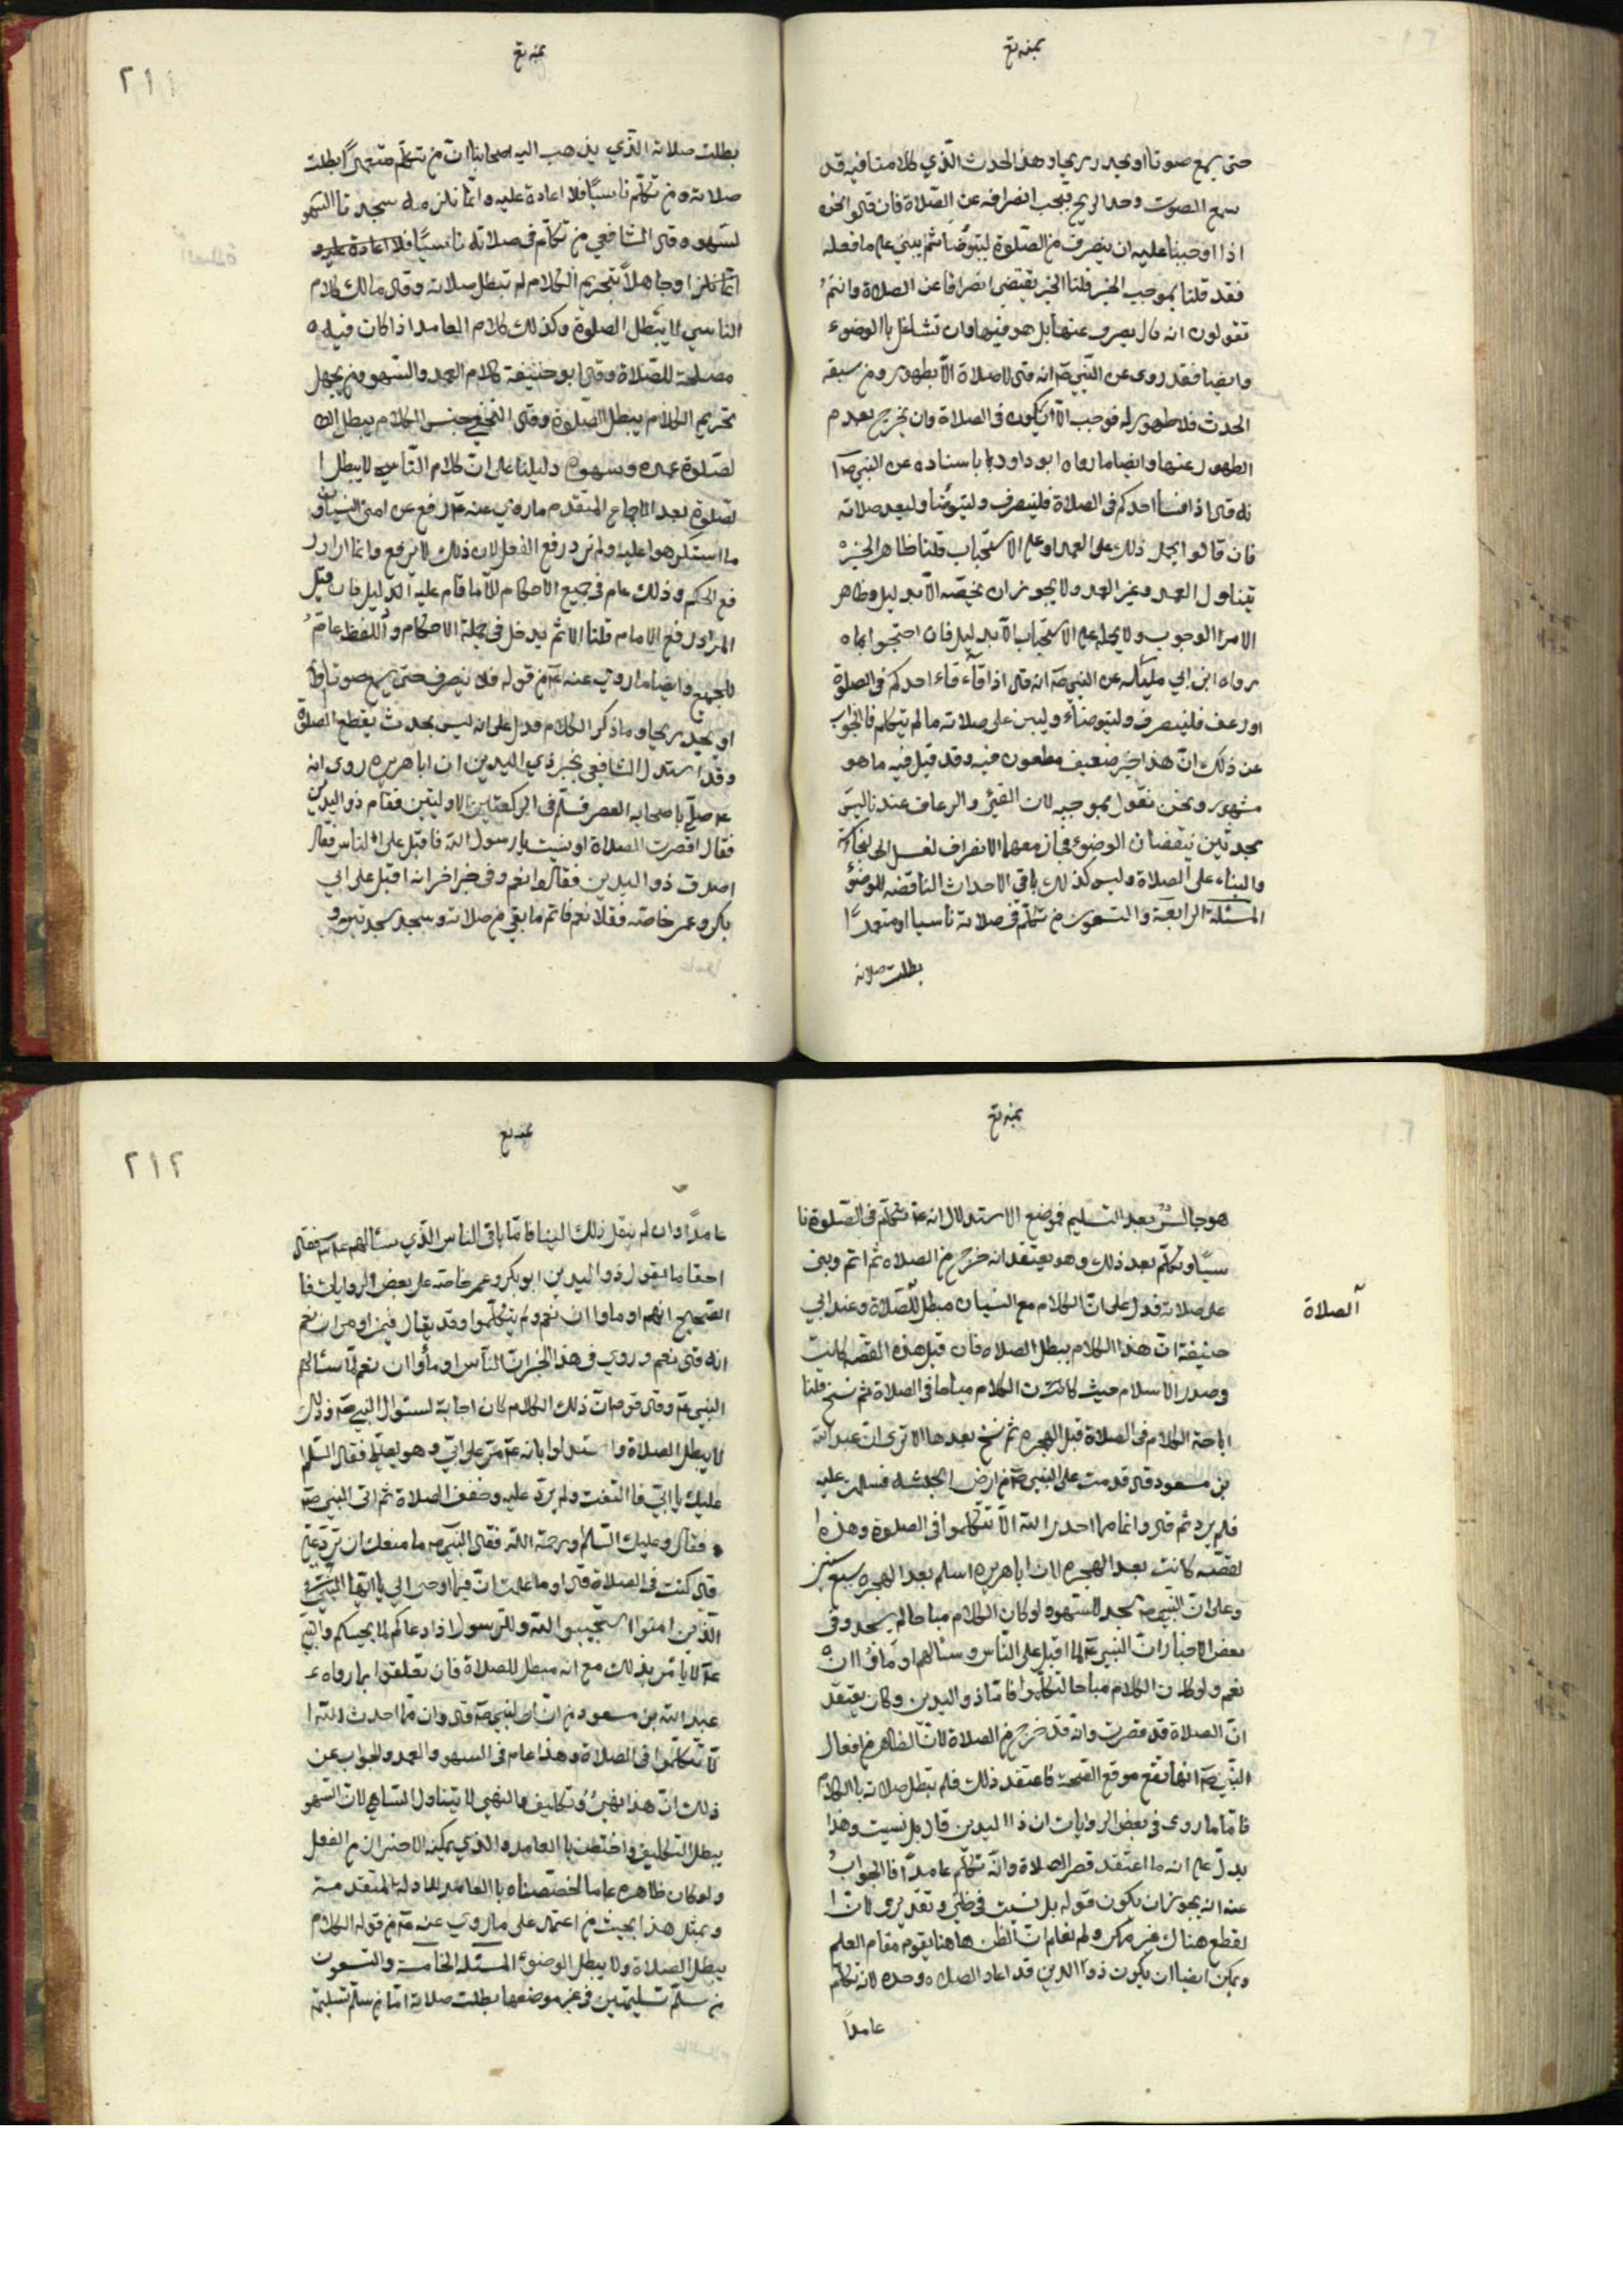 حتى يسمع صوتا او يجد ريحا وهذا الحدث الذي كلامنا فيه قد
سمع الصوت وجد الريح فيجب انصرافه عن الصلاة فان قالوا نحن
اذا اوجبنا عليه ان ينصرف من الصلوة ليتوضأ ثم يبني على ما فعله
فقد قلنا بموجب الخبر قلنا الخبر يقتضي انصرافا عن الصلاة وانتم
تقولون انه لا ينصرف عنها بل هو فيها وان تشاغل بالوضوء
وايضا فقد روى عن النبي ص انه قال لا صلاة الا بطهور ومن سبقه
الحدث فلا طهور له فوجب الا يكون في الصلاة وان يخرج بعدم
الطهور عنها وايضا ما رواه ابو داود باسناده عن النبي ص ا
نه قال اذا فسا احدكم في الصلاة فلينصرف وليتوضأ وليعد صلاته
فان قالوا يحمل ذلك على العمد او على الاستحباب قلنا ظاهر الخبر
يتناول العمد وغير العمد ولا يجوز ان نخصه الا بدليل وظاهر
الامر الوجوب ولا يحمله على الاستحباب الا بدليل فان احتجوا بما
رواه ابن ابي مليكه عن النبي ص انه قال اذا قاء احدكم في الصلوة
او رعف فلينصرف وليتوضأ وليبن على صلاته ما لم يتكلم فالجواب
عن ذلك ان هذا خبر ضعيف مطعون فيه وقد قيل فيه ما هو
مشهور ونحن نقول بموجبه لان القئ والرعاف عندنا ليس
بحدثين ينقضان الوضوء فجاز معهما الانصراف لغسل النجاسة
والبناء على الصلاة وليس كذلك باقي الاحداث الناقضه للوضوء
المسئلة الرابعة والتسعون من تكلم في صلاته ناسيا او متعمدا
بطلت صلاته
٢١١
بطلت صلاته الذي يذهب اليه اصحابنا ان من تكلم متعمدا بطلت
صلاته ومن تكلم ناسيا فلا اعادة عليه وانما يلزمه سجدتا السهو
لسهوه وقال الشافعي من تكلم في صلاته ناسيا فلا اعادة عليه و
انما يلزم او جاهلا بتحريم الكلام لم تبطل صلاته وقال مالك كلام
الناسي لا يبطل الصلوة وكذلك كلام العامد اذا كان فيه
مصلحة للصلاة وقال ابو حنيفة كلام العمد والسهو ومن يجهل
تحريم الكلام يبطل الصلوة وقال النخعي جنس الكلام يبطل
لصلوة عمده وسهوه دليلنا على ان كلام الناسي لا يبطل ا
لصلوة بعد الاجماع المتقدم ما روي عنه ع رفع عن امتي النسيان و
ما استكرهوا عليه ولم يرد رفع الفعل لان ذلك لا يرفع وانما اراد ر
فع الحكم وذلك عام في جميع الاحكام الا ما قام عليه الدليل فان قيل
المراد رفع الاثام قلنا الاثم يدخل في جملة الاحكام واللفظ عام
للجميع وايضا ما روي عنه ع من قوله فلا ينصرف حتى يسمع صوتا
او يجد ريحا وما ذكر الكلام فدل على انه ليس بحدث يقطع الصلوة
وقد استدل الشافعي بخبر ذي اليدين ان ابا هريره روى انه
ع صلى باصحابه العصر فسلم في الركعتين الاوليتين فقام ذو اليدين
فقال اقصرت الصلاة او نسيت يا رسول الله فاقبل على الناس فقال
اصدق ذو اليدين فقالوا نعم وفي خبر اخر انه اقبل على ابي
بكر وعمر خاصه فقالا نعم فاتم ما بقي من صلاته وسجد سجدتين و
هو جالس بعد التسليم فموضع الاستدلال انه ع تكلم في الصلوة نا
سيا وتكلم بعد ذلك وهو يعتقد انه خرج من الصلاه ثم اتم وبنى
على صلاته فدل على ان الكلام مع النسيان مبطل للصلاة وعند ابي
الصلاة
حنيفة ان هذا الكلام يبطل الصلاه فان قيل هذه القصه كانت
وصدر الاسلام حيث كانت الكلام مباحا في الصلاة ثم نسخ قلنا
اباحة الكلام في الصلاة قبل الهجره ثم نسخ بعدها الا ترى ان عبد الله
بن مسعود قال قدمت على النبي ص من ارض الحبشه فسلمت عليه
فلم يرد ثم قال وان مما احدث الله الا تتكلموا في الصلوة وهذه ا
لقصه كانت بعد الهجره لان ابا هريره اسلم بعد الهجره سبع سنين
وعلى ان النبي ص سجد للسهو ولو كان الكلام مباحا لم يسجد وفي
بعض الاخبار ان النبي ص لما اقبل على الناس وسئالهم اومأوا ان
نعم ولو كان الكلام مباحا لتكلموا فاما ذو اليدين وكان يعتقد
ان الصلاة قد قصرت وانه قد خرج من الصلاة لان الظاهر من افعال
النبي ص انها تقع موقع الصحة فاعتقد ذلك فلم تبطل صلاته بالكلام
فاما ما روى في بعض الروايات ان ذا اليدين قال بل نسيت وهذا
يدل على انه ما اعتقد قصر الصلاة وانه تكلم عامدا فالجواب
عنه انه يجوز ان يكون قوله بل نسيت في ظني وتقديري لان ا
لقطع هناك غير ممكن ولم نعلم ان الظن هاهنا يقوم مقام العلم
ويمكن ايضا ان يكون ذو اليدين قد اعاد الصلاه وحده لانه تكلم
عامدا
٢١٢
عامدا وان لم ينقل ذلك الينا فاما باقي الناس الذي سئالهم فقال
احقا ما يقول ذو اليدين ابو بكر وعمر خاصه على بعض الروايات فا
الصحيح انهم اوماوا ان نعم ولم يتكلموا وقد يقال فيمن اومى ان نعم
انه قال نعم وروي في هذا الخبر ان الناس اومأوا ان نعم لما سئالهم
النبي ع وقال قوم ان ذلك الكلام كان اجابة لسئوال النبي ص وذلك
لا يبطل الصلاة واستدلوا بانه ع مر على ابي وهو يصلي فقال السلام
عليك يا ابي فالتفت ولم يرد عليه وخفف الصلاة ثم اتى النبي ص
فقال وعليك السلام ورحمة الله فقال النبي ص ما منعك ان ترد علي
قال كنت في الصلاة قال او ما علمت ان فيما اوحى الي يا ايها
الذين امنوا استجيبوا لله وللرسول اذا دعاكم لما يحييكم والنبي
ع لا يامر بذلك مع انه مبطل للصلاة فان تعلقوا بما رواه
عبد الله بن مسعود من ان النبي ص قال وان مما احدث الله ا
لا تتكلموا في الصلاة وهذا عام في السهو والعمد والجواب عن
ذلك ان هذا نهي وتكليف والنهي لا يتناول الساهي لان السهو
يبطل التكليف واختص بالعامد والذي يمكنه الاحتراز من الفعل
ولو كان ظاهره عاما لخصصناه بالعامد للادلة المتقدمة
وبمثل هذا يجيب من اعتمد على ما روي عنه ع من قوله الكلام
يبطل الصلاة ولا يبطل الوضوء المسئله الخامسة والتسعون
من سلم تسليمتين في غير موضعها بطلت صلاته اما من سلم تسليمة